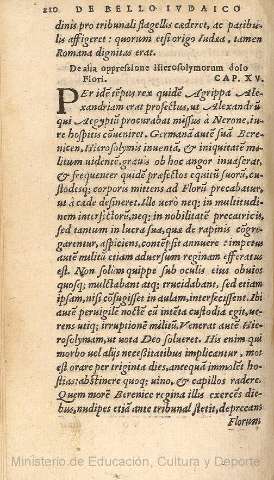 210 DE BELLO IVDAICO
dinis pro tribunali flagellis cæderet, ac patibu-
lis affigeret: quorum etsi origo Iudæa, tamen
Romana dignitas erat.
De alia oppressione Hierosolymorum dolo
Flori. CAP. XV.
PER idē tēpus rex quidē Agrippa Ale-
xandriam erat profectus, ut Alexandrū
qui Aegyptū procurabat missus à Nerone, iu-
re hospitis cōueniret. Germanā autē suā Bere-
nicen, Hierosolymis inuentā, & iniquitatē mi-
litum uidente, grauis ob hoc angor inuaserat,
& frequenter quidē præfectos equitū suorū, cu-
stodesq; corporis mittens ad Florū precabatur,
ut à cæde desineret. Ille uerò neq; in multitudi-
nem interfectorū, neq; in nobilitatē precatricis,
sed tantum in lucra sua, quæ de rapinis cōgre-
garentur, aspiciens, contēpsit annuere: impetus
autē militū etiam aduersum reginam efferatus
est. Non solùm quippe sub oculis eius obuios
quosq; mulctabant atq; trucidabant, sed etiam
ipsam, nisi cōfugisset in aulam, interfecissent. Ibi
autē peruigilē noctē cū intēta custodia egit, ue-
rens utiq; irruptionē militū. Venerat autē Hie-
rosolymam, ut uota Deo solueret. His enim qui
morbo uel alijs necessitatibus implicantur, mos
est orare per triginta dies, antequā immolēt ho-
stias: abstinere quoq; uino, & capillos radere.
Quem morē Berenice regina illis exercēs die-
bus, nudipes etiā ante tribunal stetit, deprecans
Florum
Ministerio de Educación, Cultura y Deporte